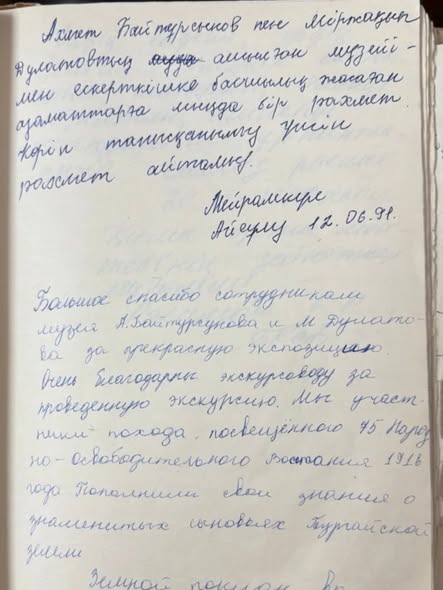 Ахмет Байтұрсынов пен Міржақып
Дулатовтың ашылған музейі-
мен ескерткішке басшылық жасаған
азаматтарға мыңда бір рахмет.
Көріп танысқанымыз үшін
рахмет айтамыз.
Мейрамкүл
Айсұлу 12.06.91.
Большое спасибо сотрудникам
музея А.Байтурсунова и М Дулато-
ва за прекрасную экспозицию.
Очень благодарны экскурсоводу за
проведенную экскурсию. Мы участ-
ники похода, посвещённого 75 Народ
но-освободительного Востания 1916
года Пополнили свои знания о
знаменитых сыновьях Тургайской
земли
Земной поклон